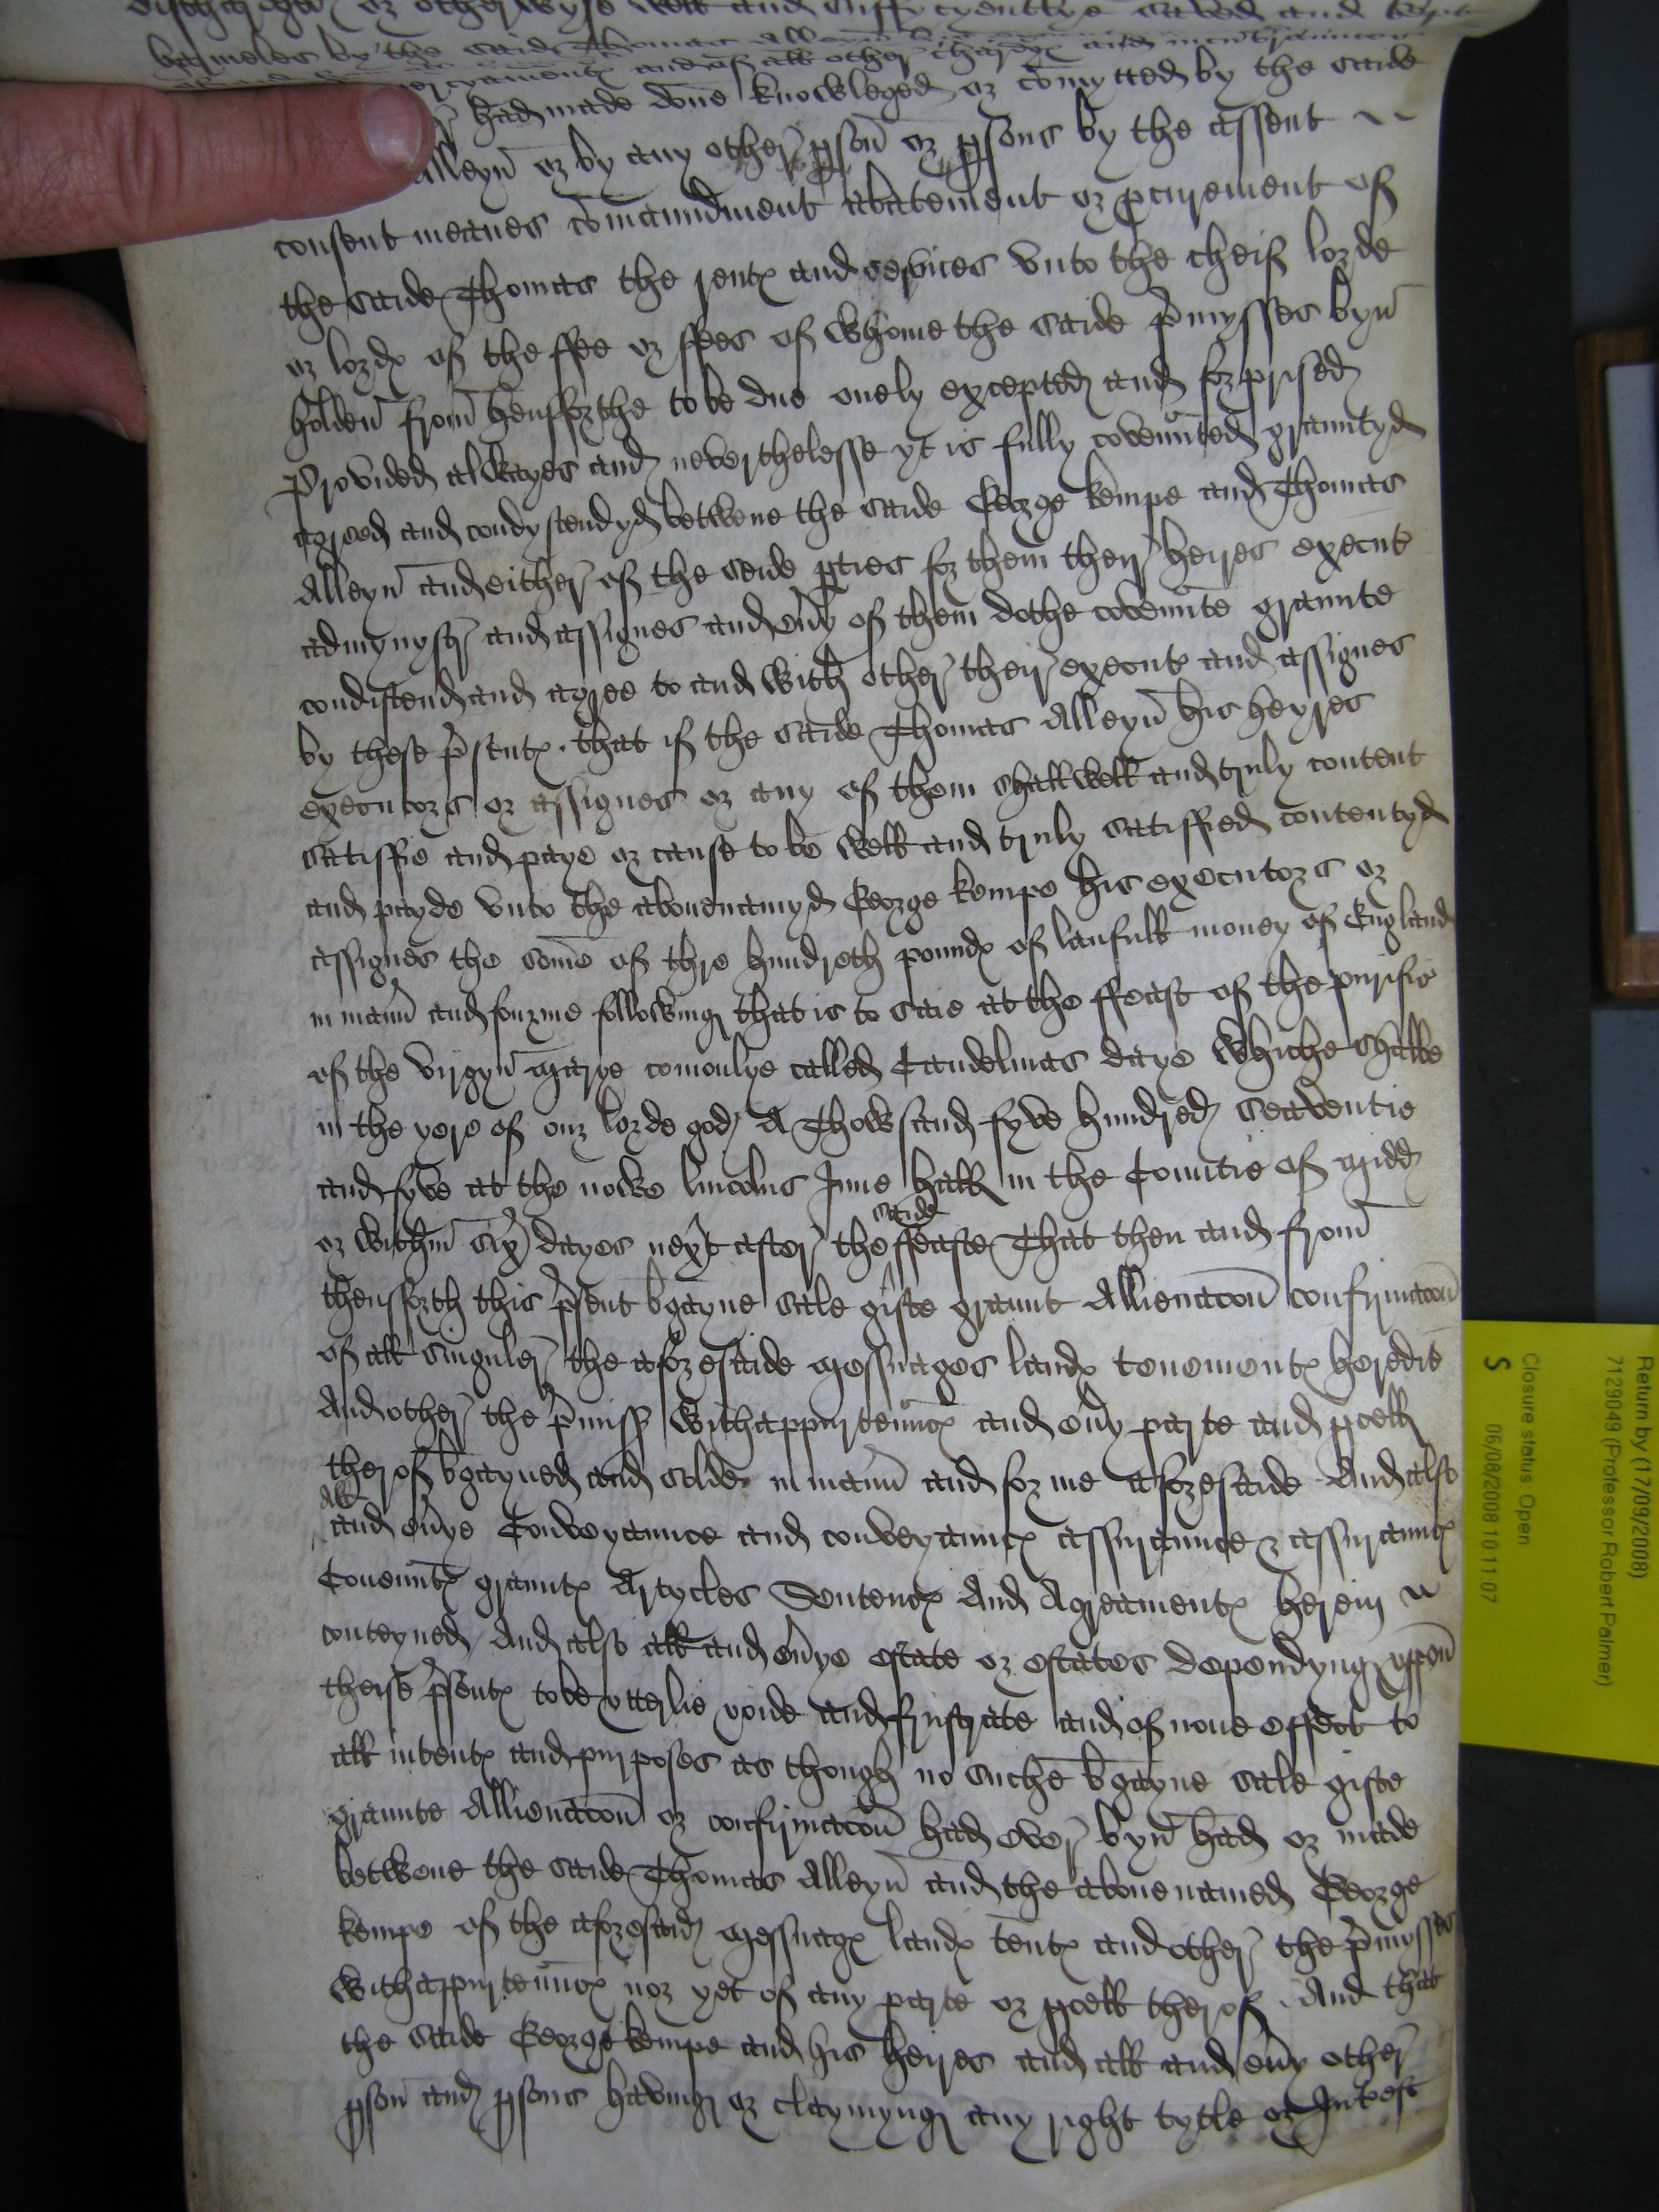 dischargid or otherwyse well and suffycyentlye saved and kept
harmeles by the saide Thomas Alleyn
and of all other chargx and incubrannces
had made done knowleged or comytted by the saide
Alleyn or by any other pson or psons by the assent
consent meanes comaundment abatement or pcurement of
the saide Thomas the rentx and services vnto the cheif lorde
or lordx of the ffee or ffees of whome the saide pmysses byn
holden from hensforthe to be due onely excepted and forprised
Provided alwayes and neverthelesse yt is fully covennted grauntyd
agreed and condyscendyd betwene the saide George Kempe and Thomas
Alleyn and either of the seide pties for them their heires execut
admynystr and assignes and evy of them dothe covennte graunte
condiscend and agree to and with other their executx and assignes
by these psentx that if the saide Thomas Alleyn his heyres
executors or assignes or any of them shall well and truly content
satisffie and paye or cause to be well and truly satisffied contentyd
and payde vnto the abouenamyd George Kempe his executors or
assignes the some of thre hundreth poundx of laufull money of England
in mann and fourme following that is to saie at the ffeast of the purific
of the virgyn Marye comonlye called Candelmas daye whiche shalbe
in the yere of our lorde god A Thowsand fyve hundred seaventie
and fyve at the nowe lincolns Inne hall in the Countie of Midd
or within six dayes next after the saide ffeaste That then and from
thensforth this psent bgayne sale gifte graunt Allienacon confirmacon
of all singuler the aforesaide Messuages landx tenementx heredit
And other the pmiss with appurtennncx and evy parte and pcell
therof bgayned and solde in mann and forme aforesaide And also
all and evye Conveyaunce and conveyauncx assuraunce & assurauncx
Covenntx grauntx Artycles Sentencx And Agreamentx herein
conteyned And also all and evye estate or estates dependyng vppon
theise psentx to be vtterlie voide and frustrate and of none effect to
all intentx and purposes as though no suche bgayne sale gifte
graunte Allienacon or confirmacon had ever byn had or made
betwene the saide Thomas Alleyn and the abouenamed George
Kempe of the aforesaid Messuagx landx tentx and other the pmysses
with appurtennncx nor yet of any parte or pcell therof And that
the saide George Kempe and his heires and all and evy other
pson and psons having or claymyng any right tytle or Interest
Return by (17/09/2008)
7129049 (Professor Robert Palmer)
Closure status: Open
S 06/08/2008 10:11:07